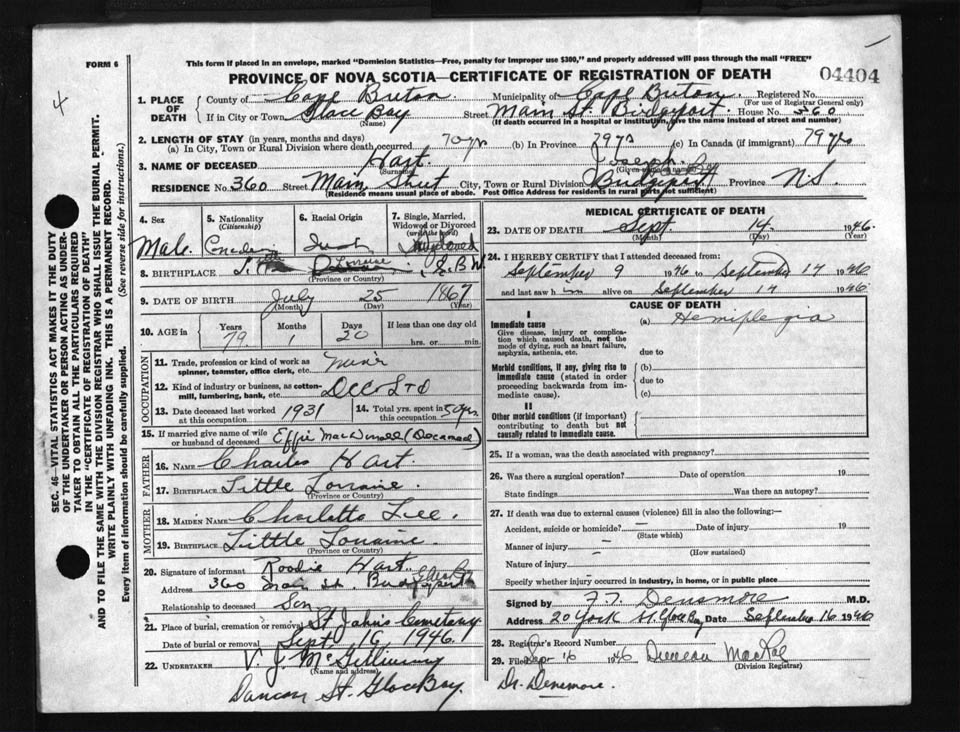 FORM 6
This form if placed in an envelope, marked "Dominion Statistics—Free, penalty for improper use $300," and properly addressed will pass through the mail "FREE"
PROVINCE OF NOVA SCOTIA—CERTIFICATE OF REGISTRATION OF DEATH
04404
4
SEC. 46—VITAL STATISTICS ACT MAKES IT THE DUTY
OF THE UNDERTAKER OR PERSON ACTING AS UNDER-
TAKER TO OBTAIN ALL THE PARTICULARS REQUIRED
IN THE "CERTIFICATE OF REGISTRATION OF DEATH"
AND TO FILE THE SAME WITH THE DIVISION REGISTRAR WHO SHALL ISSUE THE BURIAL PERMIT.
WRITE PLAINLY WITH UNFADING INK. THIS IS A PERMANENT RECORD.
Every item of information should be carefully supplied. (See reverse side for instructions.)
1. PLACE OF DEATH County of Cape Breton Municipality of Cape Breton Registered No.
(For use of Registrar General only)
If in City or Town Glace Bay Street Main St. Bridgeport House No. 360
(Name) (If death occurred in a hospital or institution, give the name instead of street and number)
2. LENGTH OF STAY (in years, months and days)
(a) In City, Town or Rural Division where death occurred 70 yr (b) In Province 79 yrs (c) In Canada (if immigrant) 79 yrs
3. NAME OF DECEASED Hart Joseph
(Surname) (Given name or names)
RESIDENCE No. 360 Street Main Street City, Town or Rural Division Bridgeport Province N.S.
(Residence means usual place of abode. Post Office Address for residents in rural parts not sufficient)
4. Sex 5. Nationality 6. Racial Origin 7. Single, Married,
(Citizenship) Widowed or Divorced
(write the word)
Male Canadian Widowed
8. BIRTHPLACE Little Lorraine
(Province or Country)
9. DATE OF BIRTH July 25 1867
(Month) (Day) (Year)
10. AGE in Years Months Days If less than one day old
79 1 20 hrs. or min.
OCCUPATION
11. Trade, profession or kind of work as Miner
spinner, teamster, office clerk, etc.
12. Kind of industry or business, as cotton- Ltd
mill, lumbering, bank, etc.
13. Date deceased last worked 1931 14. Total yrs. spent in 50 yrs
at this occupation this occupation
15. If married give name of wife Effie MacDonell (Deceased)
or husband of deceased
FATHER
16. NAME Charles Hart.
17. BIRTHPLACE Little Lorraine
(Province or Country)
MOTHER
18. MAIDEN NAME Charlotte Lee.
19. BIRTHPLACE Little Lorraine.
(Province or Country)
20. Signature of informant Roodie Hart.
Address 360 Main St. Bridgeport
Relationship to deceased Son
21. Place of burial, cremation or removal St Johns Cemetary
Date of burial or removal Sept. 16 1946.
22. UNDERTAKER V. J. McGillivray
(Name and address)
St. Glace Bay.
MEDICAL CERTIFICATE OF DEATH
23. DATE OF DEATH Sept. 14 1946
(Month) (Day) (Year)
24. I HEREBY CERTIFY that I attended deceased from:
September 9 1946 to September 14 1946
and last saw him alive on September 14 1946.
CAUSE OF DEATH
I
Immediate cause (a) Hemiplegia
Give disease, injury or complica-
tion which caused death, not the
mode of dying, such as heart failure,
asphyxia, asthenia, etc. due to
Morbid conditions, if any, giving rise to (b)
immediate cause (stated in order due to
proceeding backwards from im-
mediate cause). (c)
II
Other morbid conditions (if important)
contributing to death but not
causally related to immediate cause.
25. If a woman, was the death associated with pregnancy?
26. Was there a surgical operation? Date of operation 19
State findings Was there an autopsy?
27. If death was due to external causes (violence) fill in also the following:—
Accident, suicide or homicide? Date of injury 19
(State which)
Manner of injury
(How sustained)
Nature of injury
Specify whether injury occurred in industry, in home, or in public place
Signed by F. T. Densmore M.D.
Address 20 York St. Glace Bay Date September 16 1946
28. Registrar's Record Number
29. Filed Sep 16 1946 Duncan MacRae
(Division Registrar)
Dr. Densmore.